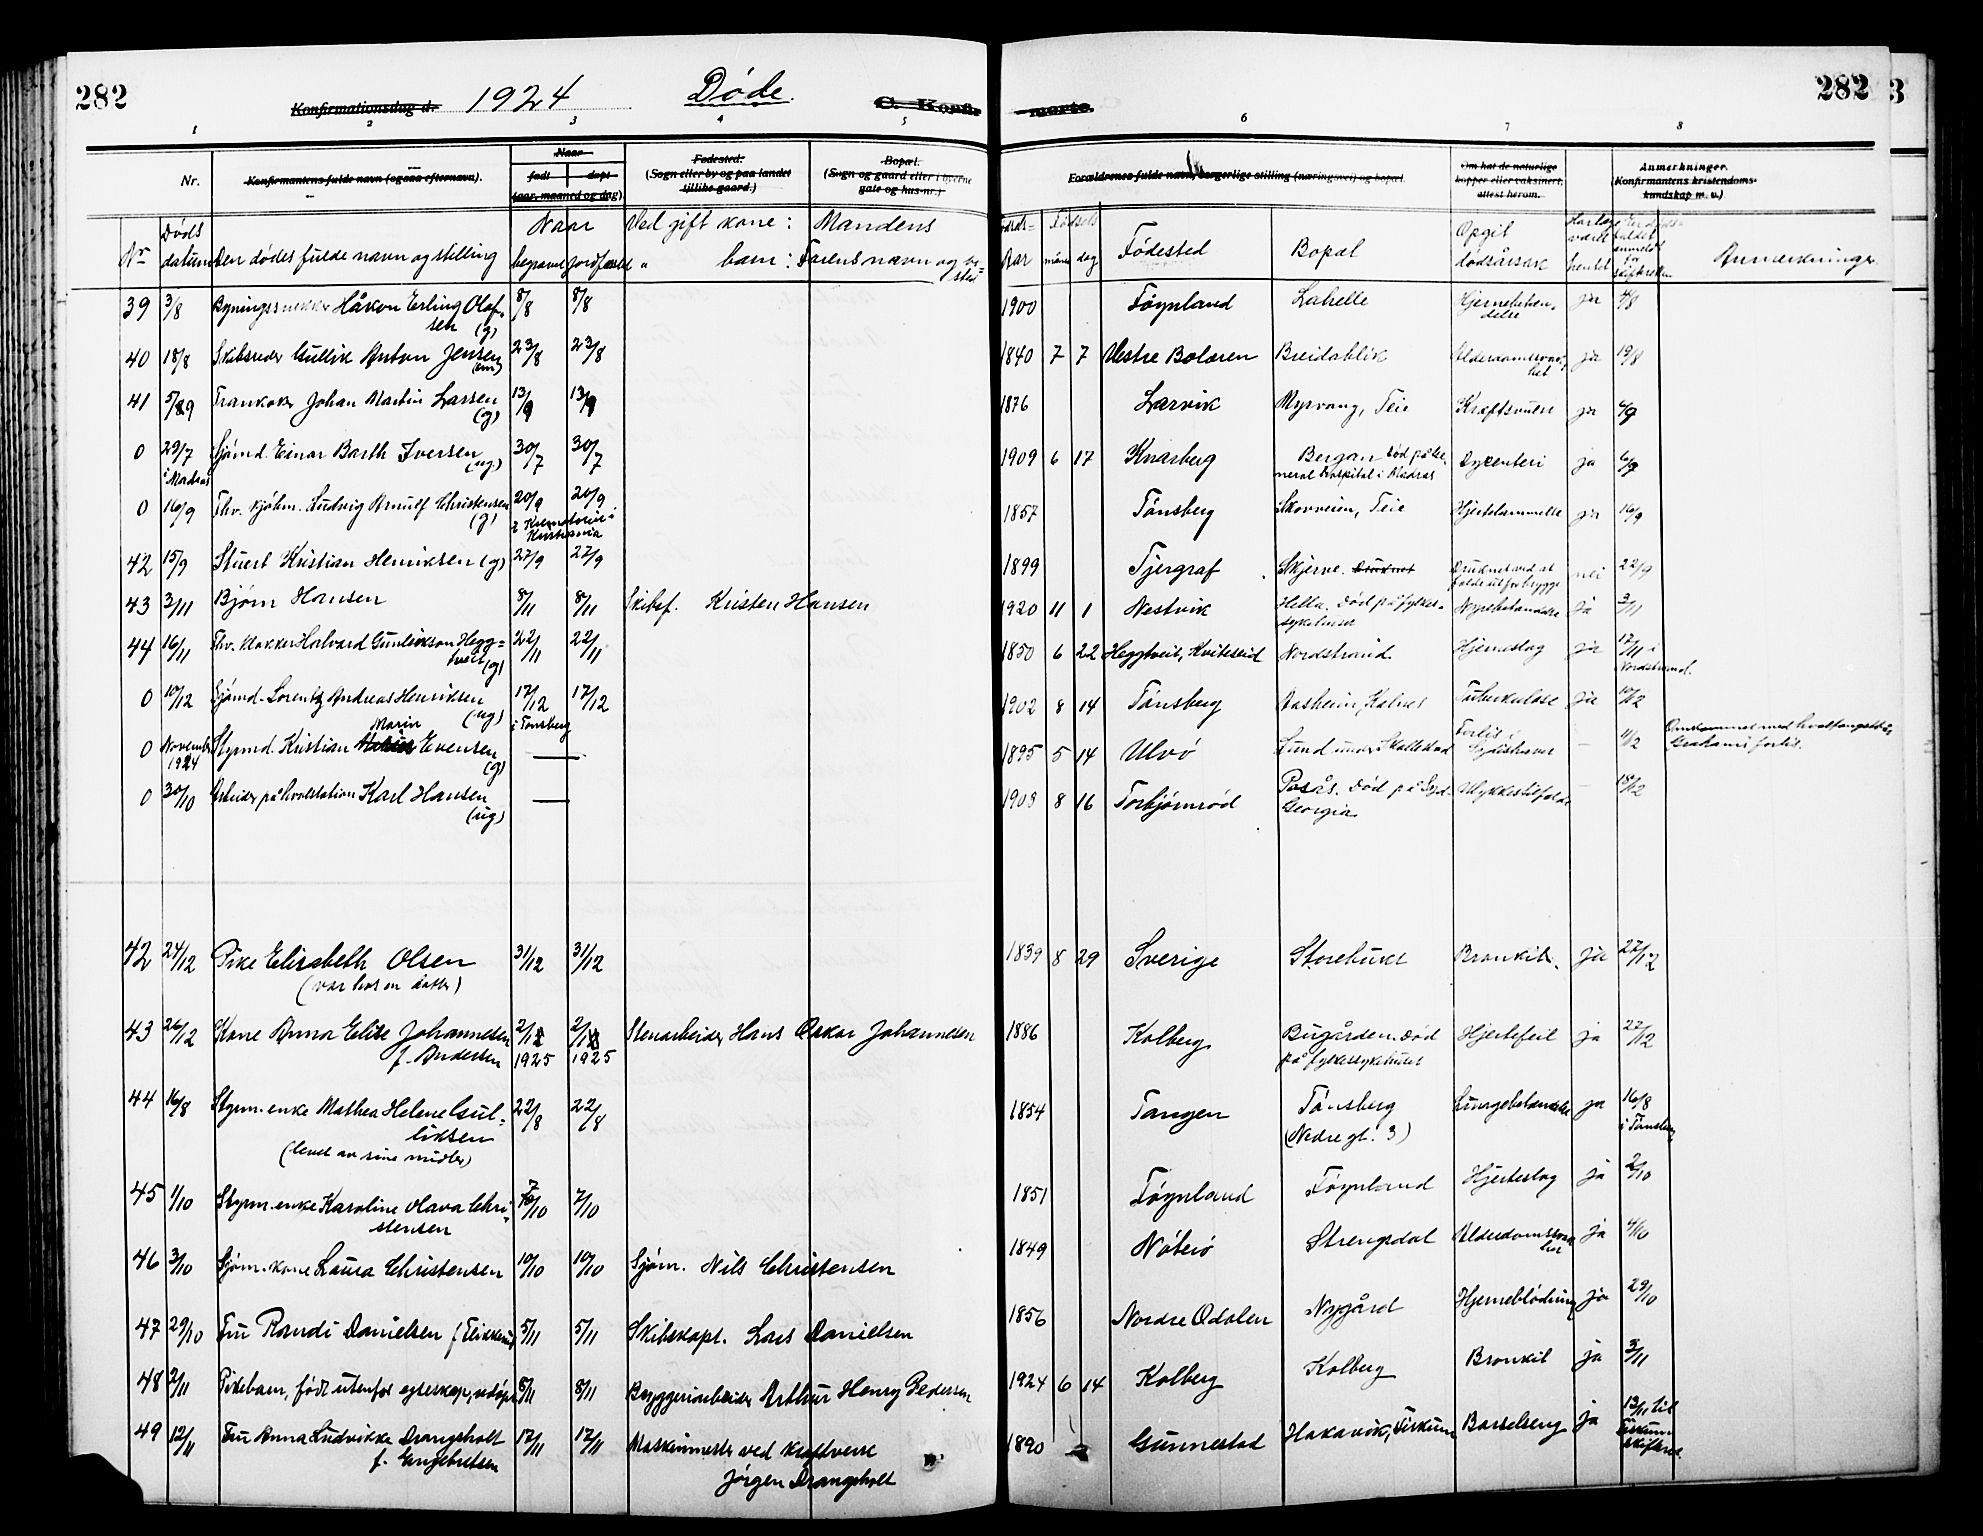 282
Konfirmationsdag d. 1924 Døde. C. Konfir-
marte. 282
1 2 3 4 5 6 7 8
Nr. Konfirmantens fulde navn (ogsaa efternavn). Naar født døpt (aar, maaned og dag). Fødested. (Sogn eller by og paa landet tillike gaard.) Bopæl. (Sogn og gaard eller i byerne gate og hus-nr.) Forældrenes fulde navn, borgerlige stilling (næringsvei) og bopæl. Om hat de naturlige kopper eller vaksinert, attest herom. Anmerkninger. (Konfirmantens kristendoms-kundskap m. v.)
Nr Døds datum Den dødes fulde navn og stilling Naar begravet jordfæstet Ved gift kone: Mandens
" barn: Farens navn og bosted
Aar måned dag Fødested Bopæl Opgit dødsårsak Anmerkninger
39 3/8 Bygningssnekker Håkon Erling Olafsen (g) 8/8 8/8 1900 Føynland Labelle Hjernebetændelse ja 4/8
40 18/8 Skibsreder Gullik Anton Jensen (em) 23/8 23/8 1840 7 7 Vestre Bolæren Breidablik Alderdomssvakhet ja 19/8
41 5/9 Trankoker Johan Martin Larsen (g) 13/9 13/9 1876 Larvik Myrvang, Teie Kræftsvulst ja 6/9
0 29/7 i Madras Sjømd. Einar Barth Iversen (ug) 30/7 30/7 1909 6 17 Knarberg Bergan død på General hospital i Madras Dysenteri ja 6/9
0 16/9 Fhv. kjøbm. Ludvig Arnulf Christensen (g) 20/9 20/9 i Krematoriet i Kristiania 1857 Tønsberg Skovveien, Teie Hjertelammelse ja 16/9
42 15/9 Stuert Kristian Henriksen (g) 27/9 27/9 1899 Fjergraf Skjerve. Druknet Druknet ved at falde ut for brygge nei 22/9
43 3/11 Bjørn Hansen 8/11 8/11 Skibsf. Kristen Hansen 1920 11 1 Nestvik Hella. Død på fylkessykehuset Nyrebetændelse ja 3/11
44 16/11 Fhv. klokker Halvard Gunleikson Heggtveit (g) 22/11 22/11 1850 6 22 Heggtveit, Kviteseid Nordstrand Hjerneslag ja 17/11 i Nordstrand.
0 10/12 Sjømd. Lorentz Andreas Henriksen (ug) 17/12 i Tønsberg 17/12 1902 8 14 Tønsberg Aasheim, Kalnes Tuberkulose ja 10/12
0 November 1924 Styrmd. Kristian Marin Evensen (g) — 1895 5 14 Ulvø Lund under Skallestad Forlis i Sydishavet — 11/12 Omkommet med hvalfangstbå. Grahams forlis.
0 30/10 Arbeider på hvalstation Karl Hansen (ug) — 1903 8 16 Torbjørnrød Påsås. Død på Syd Georgia Ulykkestilfælde — 18/12
42 24/12 Pike Elisabeth Olsen (var hos en datter) 31/12 31/12 1839 8 29 Sverige Storebukt Bronkit. ja 27/12
43 26/12 Kone Anna Elise Johannesen f. Andersen 2/1 1925 2/1 1925 Stenarbeider Hans Oskar Johannesen 1886 Kolberg Bugården. Død på fylkessykehuset Hjertefeil ja 27/12
44 16/8 Styrm. enke Mathea Helene Gulliksen (levet av sine midler) 22/8 22/8 1854 Tangen Tønsberg (Nedre gt. 3) Lungebetændelse ja 16/8 i Tønsberg
45 1/10 Styrm. enke Karoline Olava Christensen 7/10 7/10 1851 Føynland Føynland Hjerteslag ja 2/10
46 3/10 Sjøm. kone Laura Christensen 10/10 10/10 Sjøm. Nils Christensen 1849 Nøterø Strengsdal Alderdomssvakhet ja 4/10
47 29/10 Fru Randi Danielsen f. Fleikkerud 5/11 5/11 Skibskapt. Lars Danielsen 1856 Nordre Odalen Nygård Hjerneblødning ja 29/10
48 2/11 Pikebarn, født utenfor egteskap, udøpt 8/11 8/11 Bryggeriarbeider Arthur Henry Pedersen 1924 6 14 Kolberg Kolberg Bronkit ja 3/11
49 12/11 Fru Anna Ludvikke Drangsholt f. Engebretsen 17/11 17/11 Maskinmester ved Kraftverk Jørgen Drangsholt 1890 Gunnestad Hakavik, Fiskum Barselseng ja 13/11 til Fiskum skifteret.